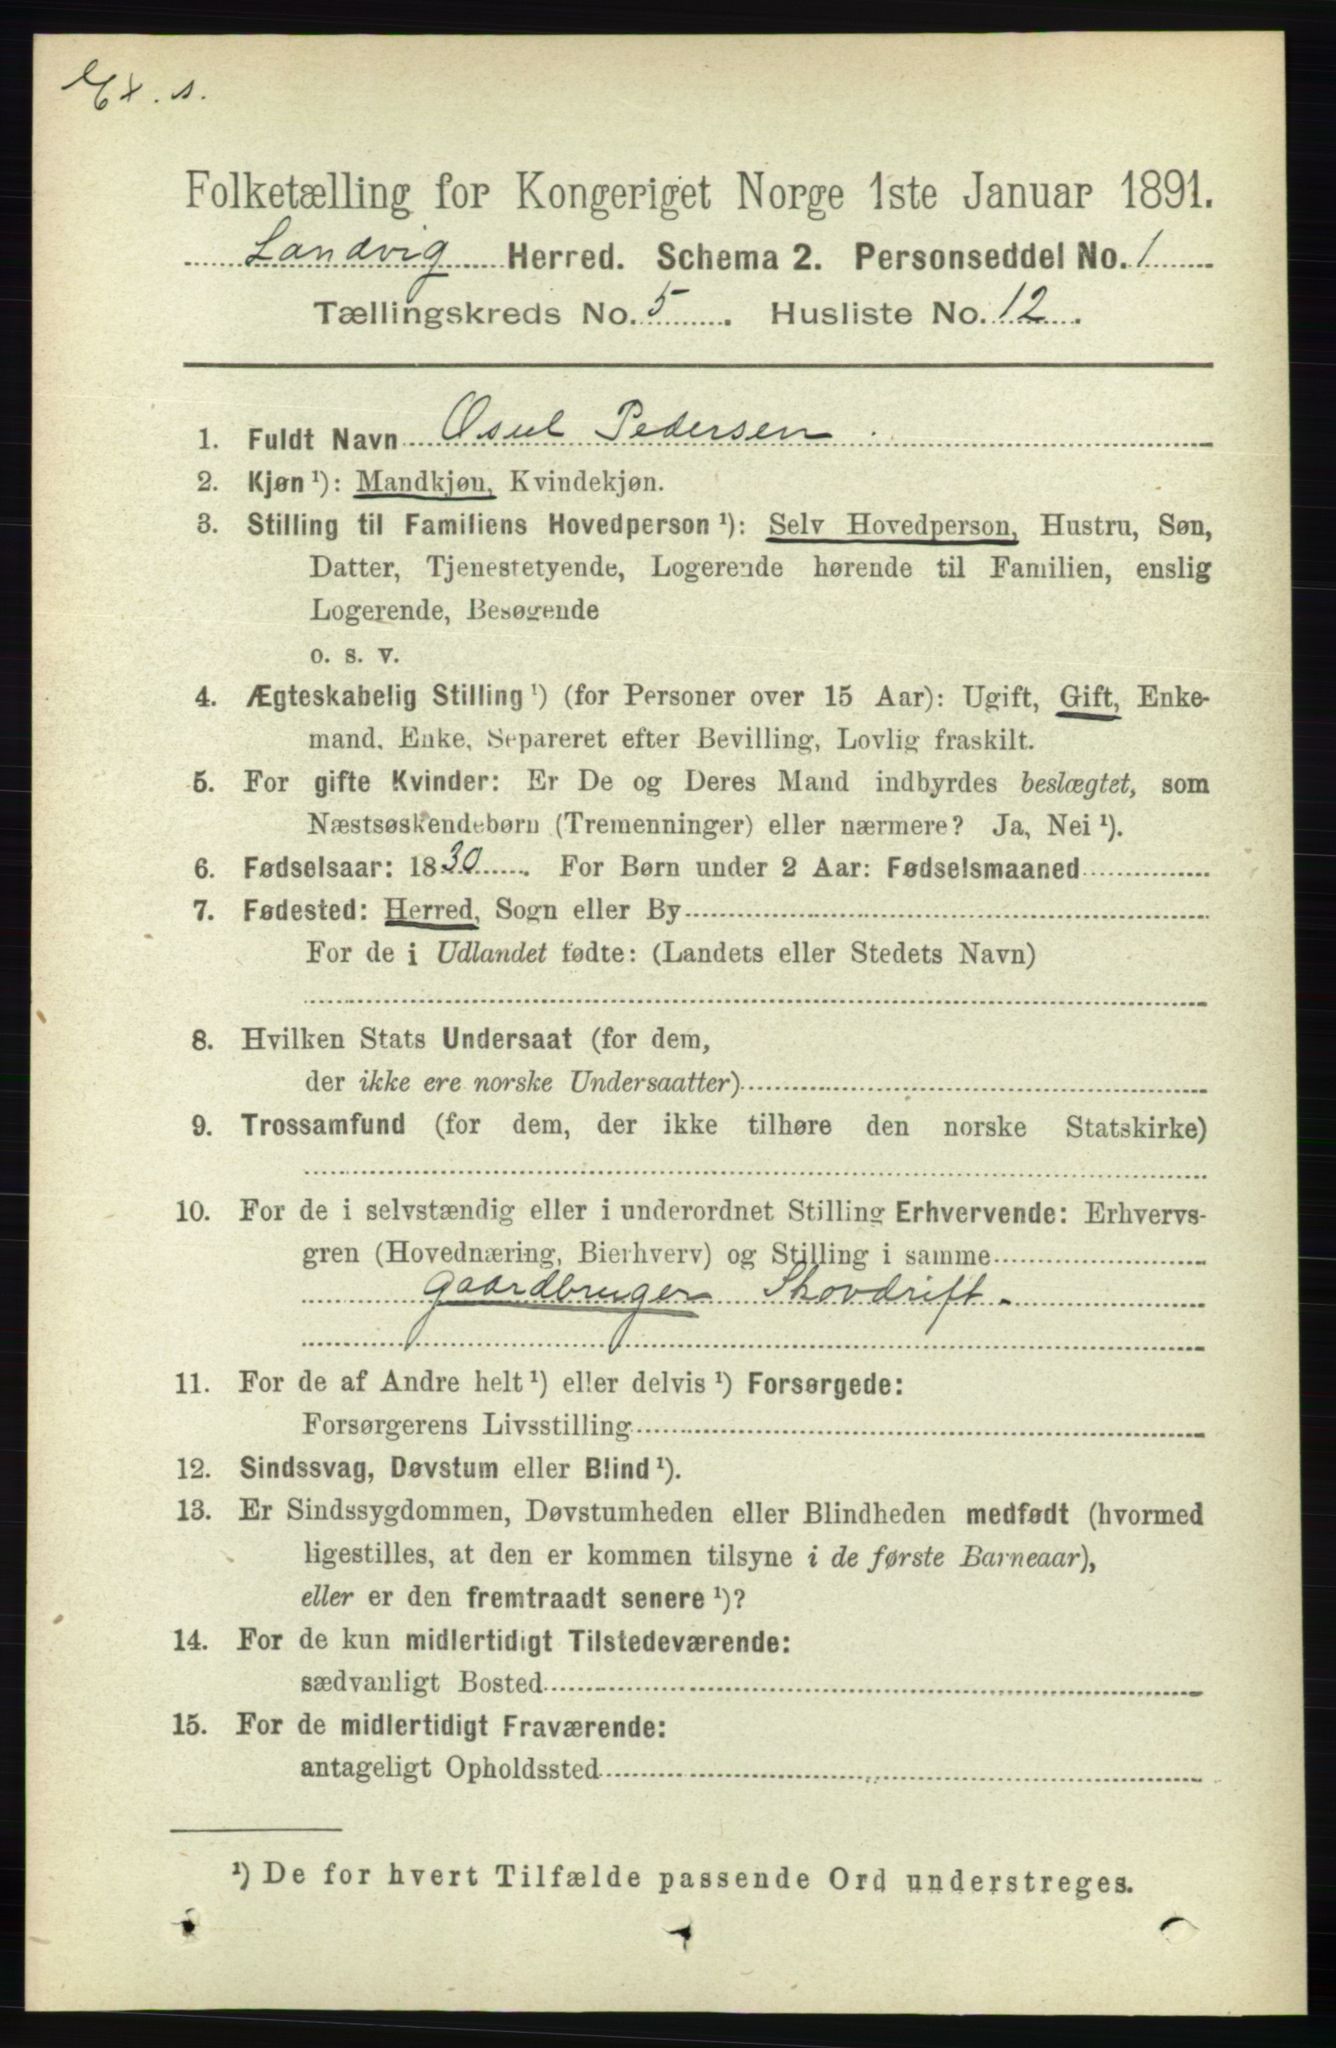 Ex. s.
Folketælling for Kongeriget Norge 1ste Januar 1891.
Landvig Herred. Schema 2. Personseddel No. 1
Tællingskreds No. 5. Husliste No. 12.
1. Fuldt Navn Osul Pedersen
2. Kjøn ¹): Mandkjøn, Kvindekjøn.
3. Stilling til Familiens Hovedperson ¹): Selv Hovedperson, Hustru, Søn,
Datter, Tjenestetyende, Logerende hørende til Familien, enslig
Logerende, Besøgende
o. s. v.
4. Ægteskabelig Stilling ¹) (for Personer over 15 Aar): Ugift, Gift, Enke-
mand, Enke, Separeret efter Bevilling, Lovlig fraskilt.
5. For gifte Kvinder: Er De og Deres Mand indbyrdes beslægtet, som
Næstsøskendebørn (Tremenninger) eller nærmere? Ja, Nei ¹).
6. Fødselsaar: 1830. For Børn under 2 Aar: Fødselsmaaned
7. Fødested: Herred, Sogn eller By
For de i Udlandet fødte: (Landets eller Stedets Navn)
8. Hvilken Stats Undersaat (for dem,
der ikke ere norske Undersaatter)
9. Trossamfund (for dem, der ikke tilhøre den norske Statskirke)
10. For de i selvstændig eller i underordnet Stilling Erhvervende: Erhvervs-
gren (Hovednæring, Bierhverv) og Stilling i samme
Gaardbruger Skovdrift.
11. For de af Andre helt ¹) eller delvis ¹) Forsørgede:
Forsørgerens Livsstilling
12. Sindssvag, Døvstum eller Blind ¹).
13. Er Sindssygdommen, Døvstumheden eller Blindheden medfødt (hvormed
ligestilles, at den er kommen tilsyne i de første Barneaar),
eller er den fremtraadt senere ¹)?
14. For de kun midlertidigt Tilstedeværende:
sædvanligt Bosted
15. For de midlertidigt Fraværende:
antageligt Opholdssted
¹) De for hvert Tilfælde passende Ord understreges.